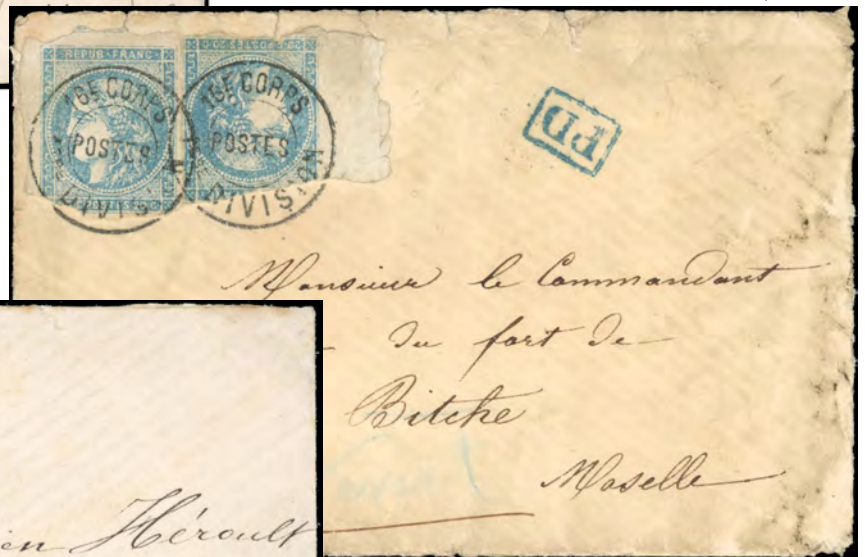 REPUB·FRANC·
16E CORPS
POSTES
DIVISION
16E CORPS
POSTES
DIVISION
PD
Monsieur le Commandant
du fort de
Bitche
Moselle
Hérault